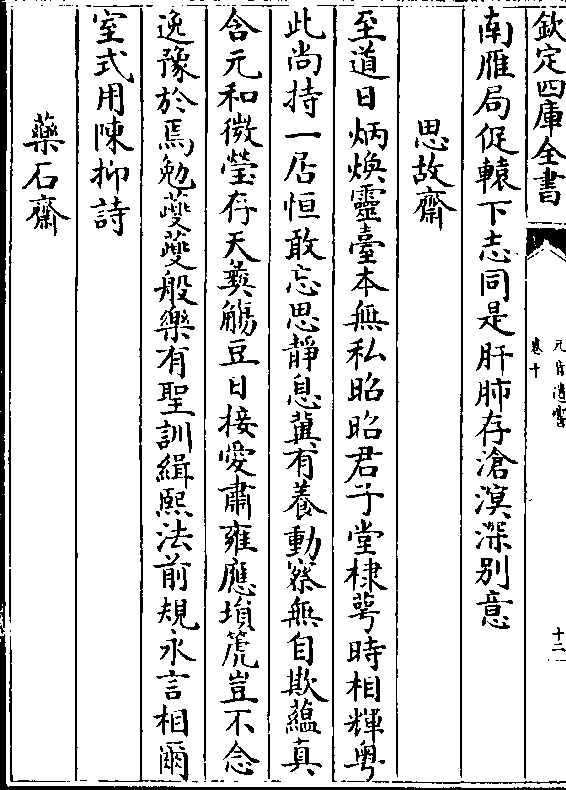 欽定四庫全書
卷十
十二
南雁局促轅下志同是肝肺存滄溟深別意
思故齋
至道日炳煥靈臺本無私昭昭君子堂棣萼時相輝粤
此尚持一居恒敢忘思靜息冀有養動察無自欺蘊真
含元和微瑩存天彛觴豆日接愛肅雍應塤箎豈不念
逸豫於焉勉夔夔般樂有聖訓緝熙法前規永言相爾
室式用陳抑詩
藥石齋